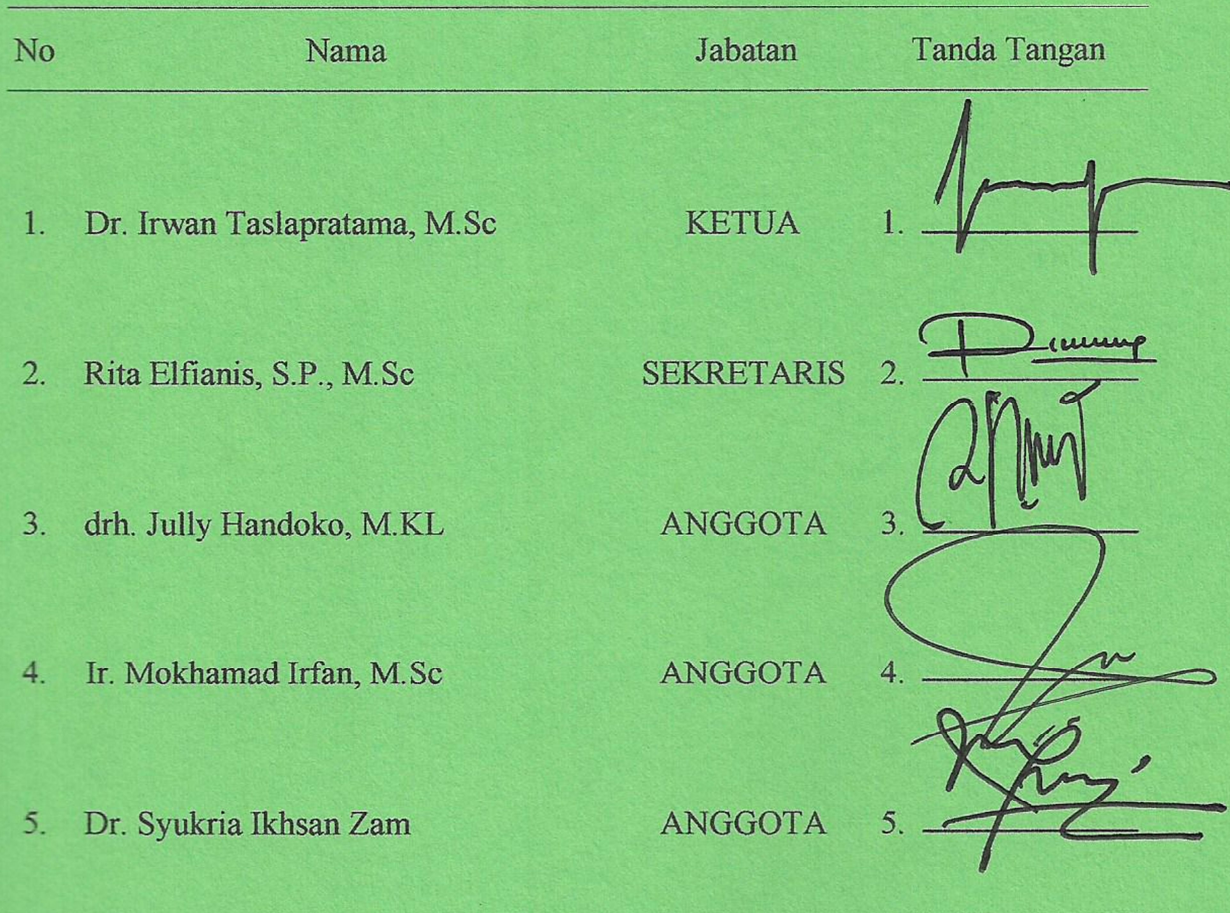 No Nama Jabatan Tanda Tangan
1. Dr. Irwan Taslapratama, M.Sc KETUA 1.
2. Rita Elfianis, S.P., M.Sc SEKRETARIS 2.
3. drh. Jully Handoko, M.KL ANGGOTA 3.
4. Ir. Mokhamad Irfan, M.Sc ANGGOTA 4.
5. Dr. Syukria Ikhsan Zam ANGGOTA 5.